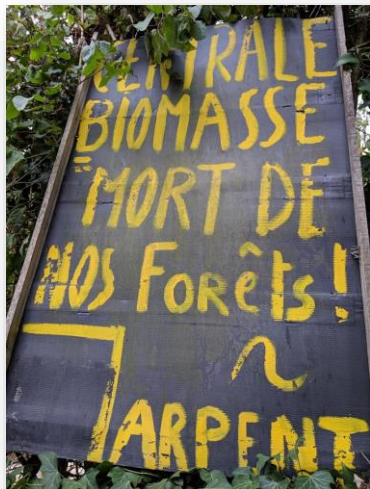 CENTRALE
BIOMASSE
= MORT DE
NOS Forêts !
ARPENT